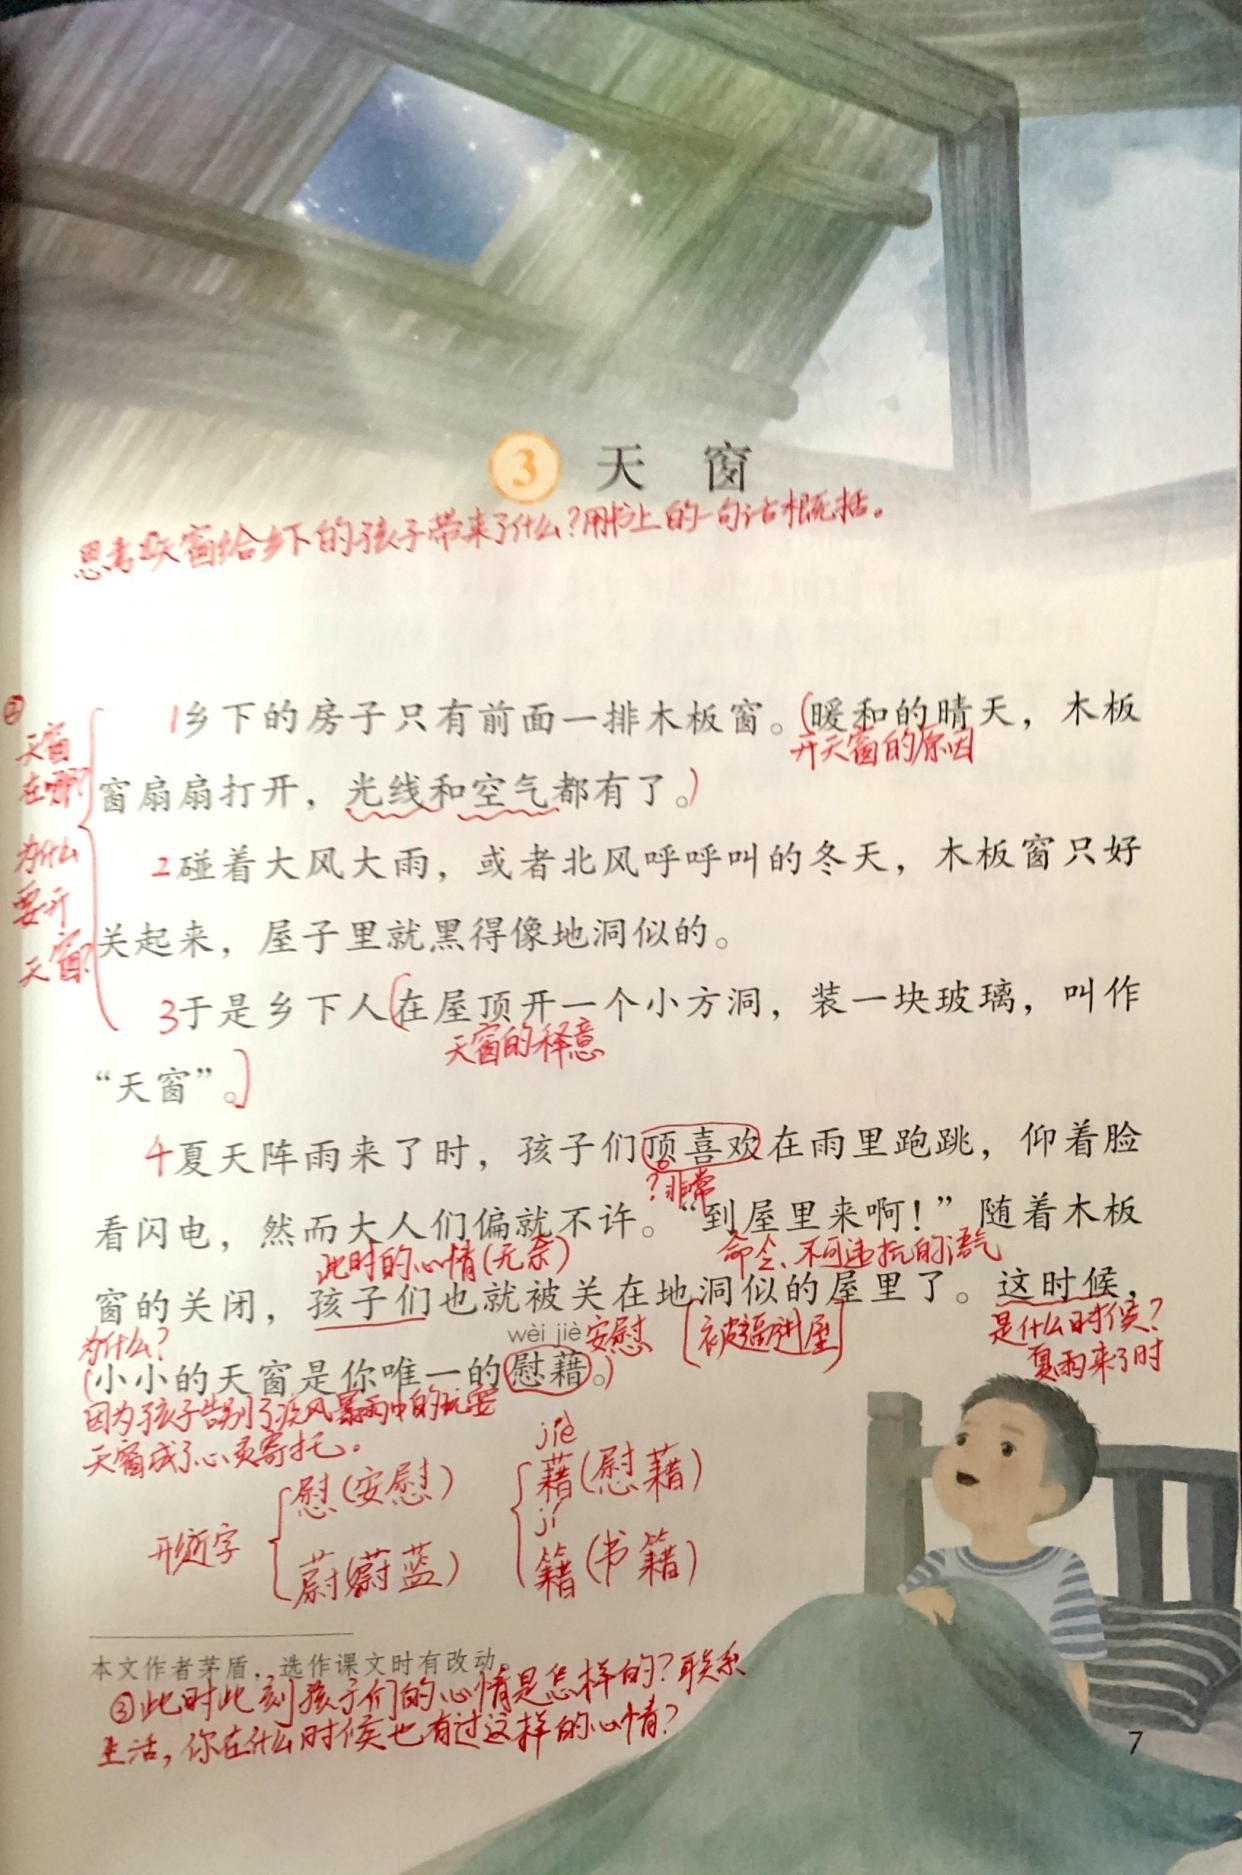 3 天 窗
思考①天窗给乡下的孩子带来了什么？用书上的一句话概括。
②
天窗
在哪？
为什么
要开
天窗？
1乡下的房子只有前面一排木板窗。（暖和的晴天，木板
开天窗的原因
窗扇扇打开，光线和空气都有了。）
2碰着大风大雨，或者北风呼呼叫的冬天，木板窗只好
关起来，屋子里就黑得像地洞似的。
3于是乡下人［在屋顶开一个小方洞，装一块玻璃，叫作
天窗的释意
“天窗”。］
4夏天阵雨来了时，孩子们顶喜欢在雨里跑跳，仰着脸
？非常
看闪电，然而大人们偏就不许。“到屋里来啊！”随着木板
此时的心情（无奈）
命令、不可违抗的语气
窗的关闭，孩子们也就被关在地洞似的屋里了。这时候，
为什么？
wèi jiè 安慰
［被逼进屋］
是什么时候？
夏雨来了时
（小小的天窗是你唯一的慰藉。）
因为孩子告别了疾风暴雨中的玩耍
天窗成了心灵寄托。
形近字
慰（安慰）
蔚（蔚蓝）
jiè
藉（慰藉）
jí
籍（书籍）
本文作者茅盾，选作课文时有改动。
③此时此刻孩子们的心情是怎样的？联系
生活，你在什么时候也有过这样的心情？
7